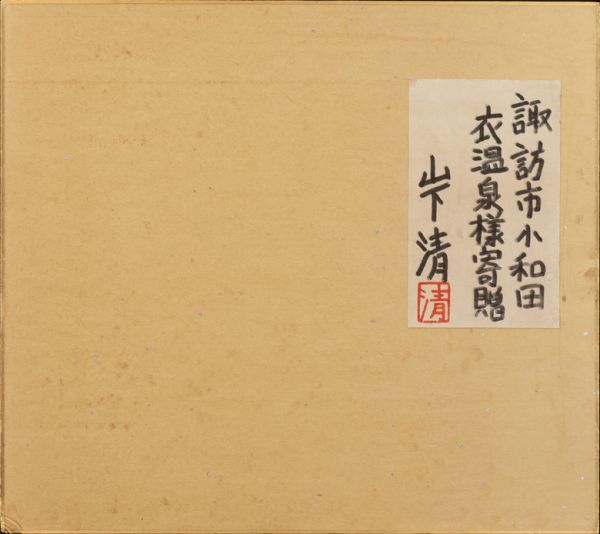 諏訪市小和田
衣温泉様寄贈
山下清
清